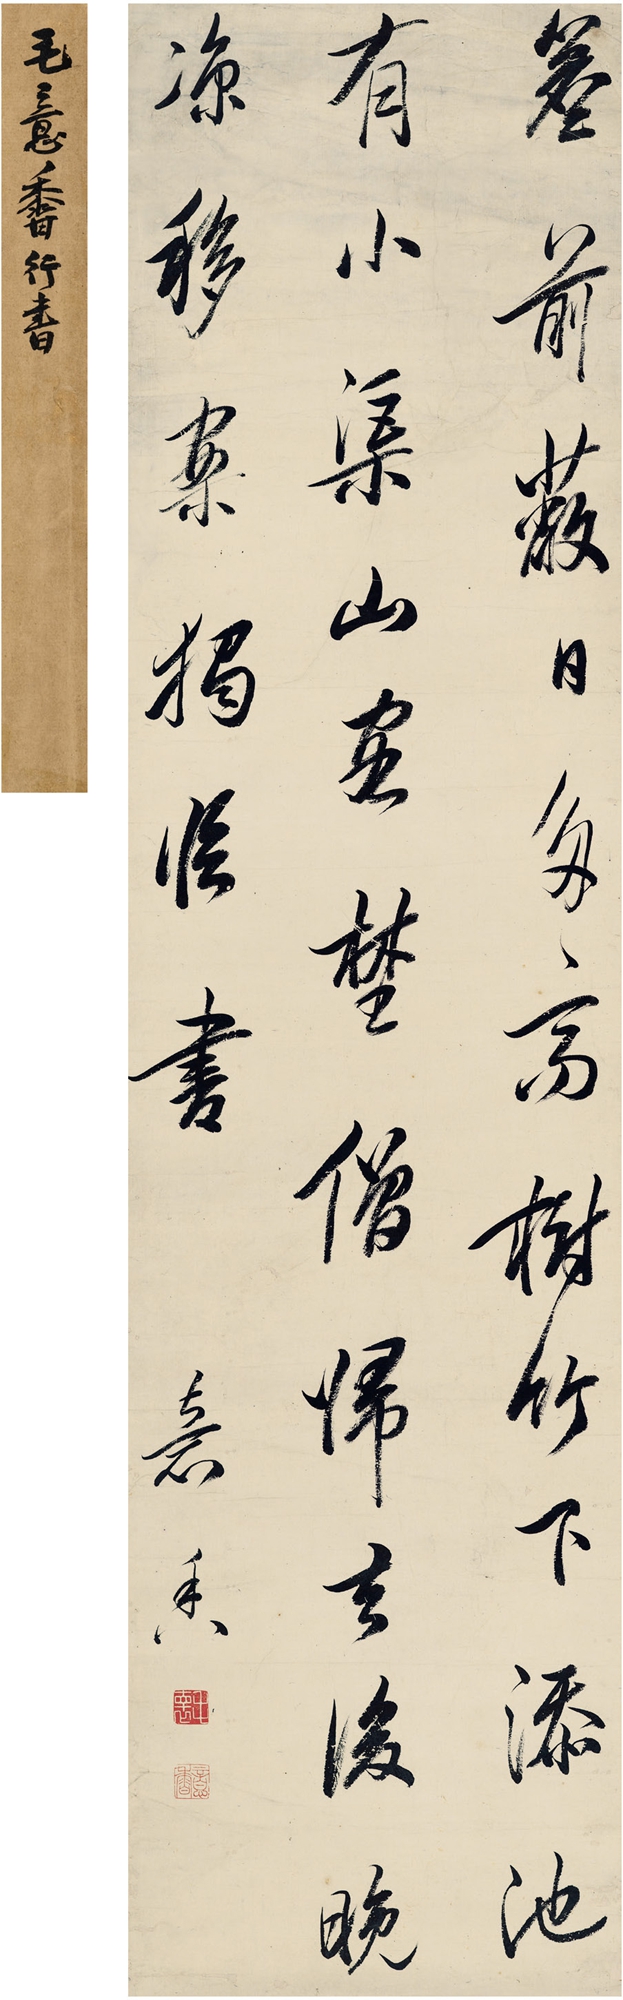 簷前蔽日多高樹竹下添池
有小渠山客埜僧歸去後晚
涼移案獨臨書
意香
意香
毛意香行書